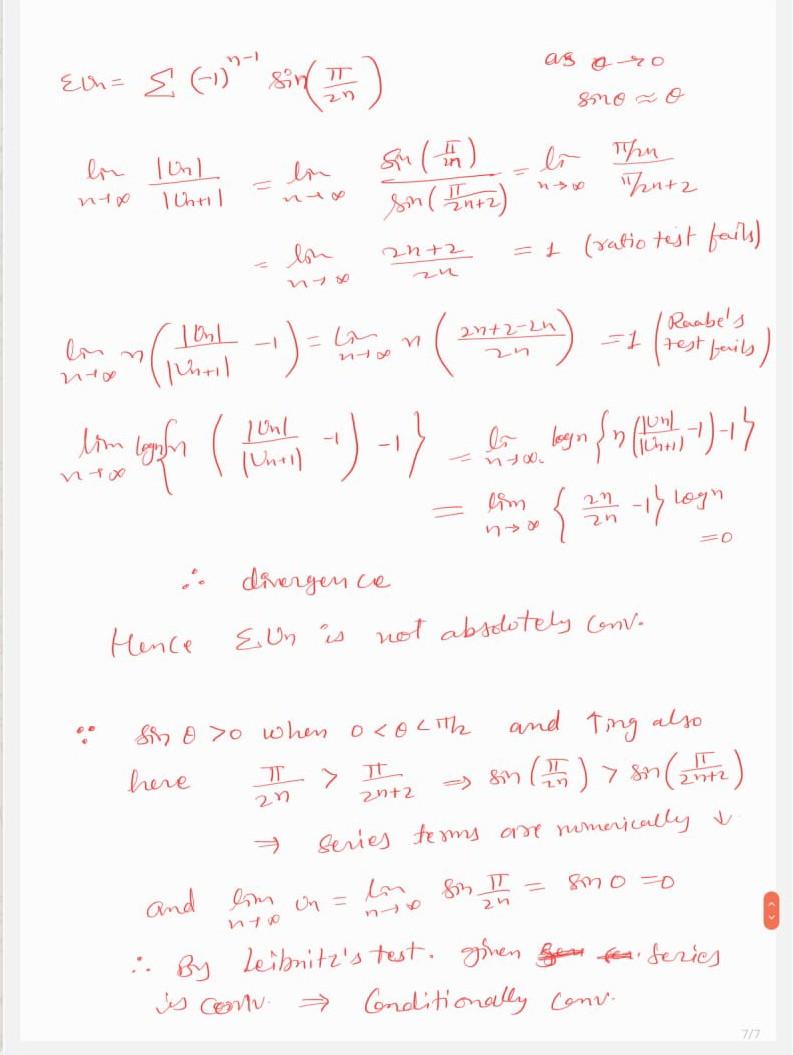 ΣUn = Σ (-1)^(n-1) sin(π/2n) as θ→0
sinθ ≈ θ
lim n→∞ |Un|/|Un+1| = lim n→∞ sin(π/2n)/sin(π/2n+2) = lim n→∞ (π/2n)/(π/2n+2)
= lim n→∞ 2n+2/2n = 1 (ratio test fails)
lim n→∞ n(|Un|/|Un+1| -1) = lim n→∞ n(2n+2-2n/2n) = 1 (Raabe's test fails)
lim n→∞ logn{n(|Un|/|Un+1| -1) -1} = lim n→∞ logn{n(|Un|/|Un+1| -1) -1}
= lim n→∞ {2n/2n -1} logn
= 0
∴ divergence
Hence ΣUn is not absolutely conv.
∵ sin θ >0 when 0<θ<π/2 and ↑ing also
here π/2n > π/2n+2 ⇒ sin(π/2n) > sin(π/2n+2)
⇒ series terms are numerically ↓
and lim n→∞ Un = lim n→∞ sin π/2n = sin 0 = 0
∴ By Leibnitz's test. given series
is conv. ⇒ Conditionally conv.
7/7